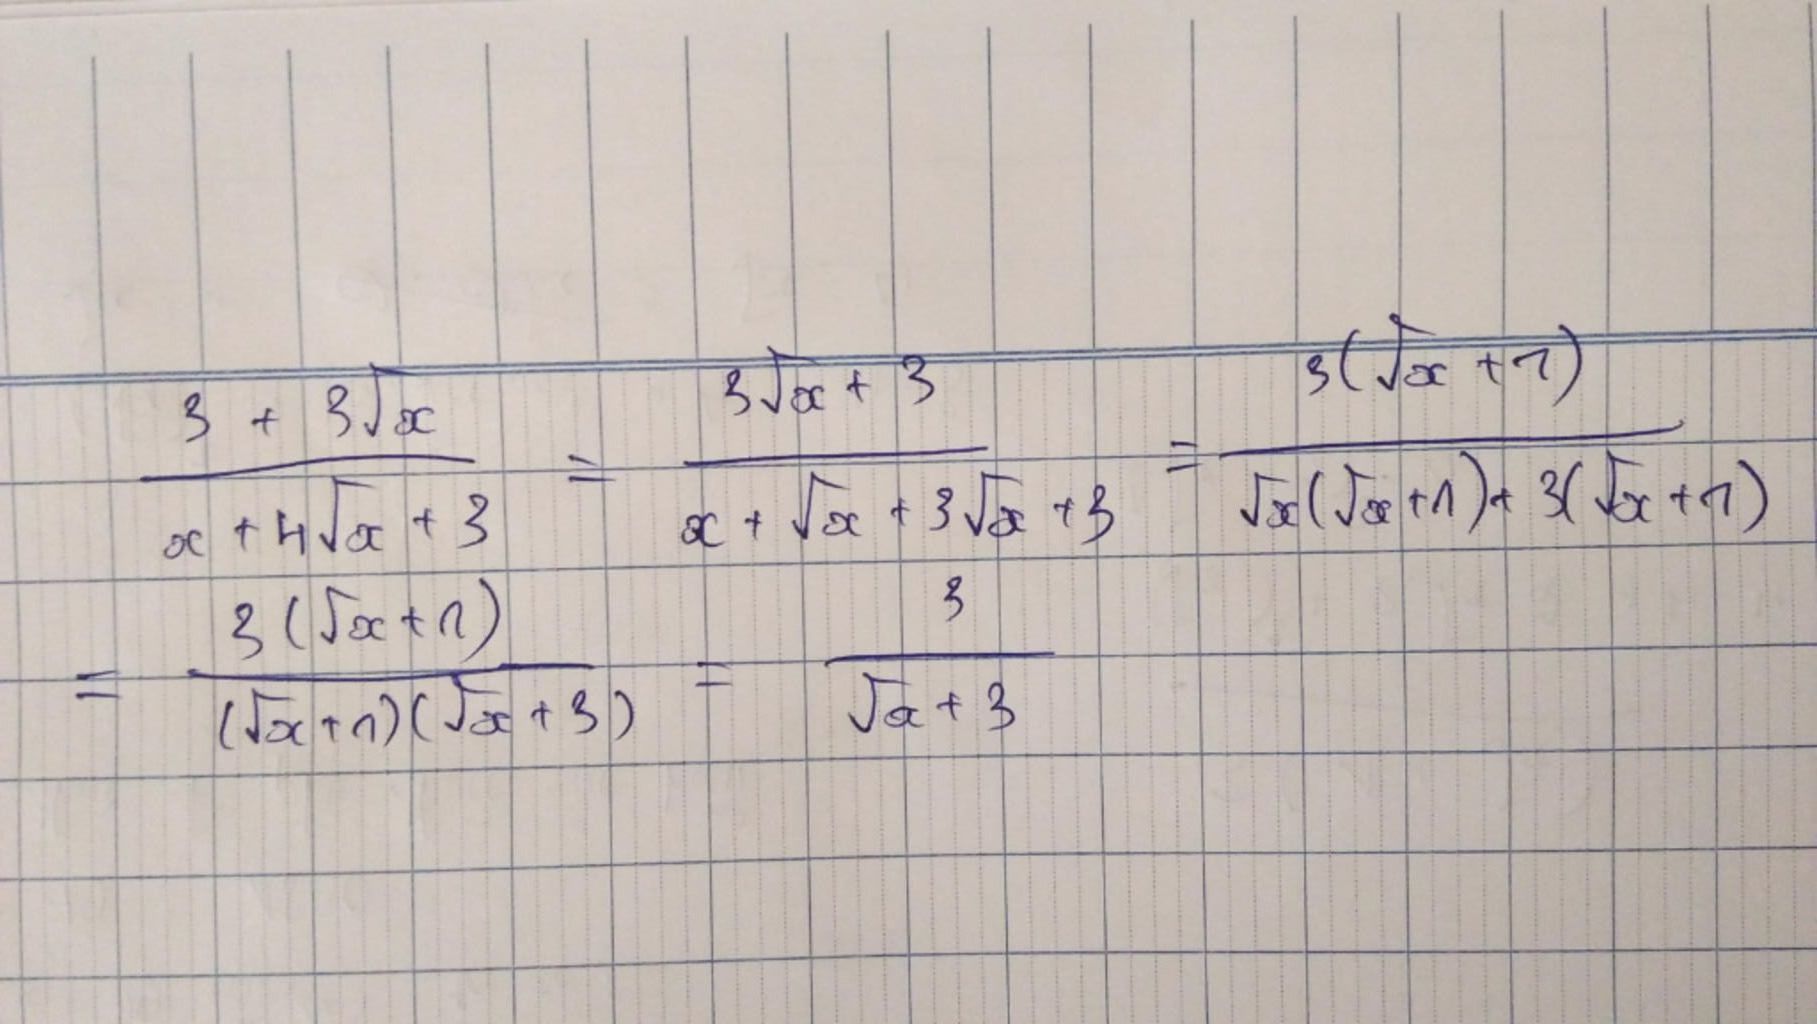 (3 + 3√x)/(x + 4√x + 3) = (3√x + 3)/(x + √x + 3√x + 3) = 3(√x + 1)/(√x(√x + 1) + 3(√x + 1))
= 3(√x + 1)/((√x + 1)(√x + 3)) = 3/(√x + 3)